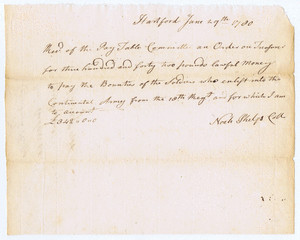 Hartford June 29th 1780
Recd of the Pay Table Committe an Order on Treasurer
for three hundred and forty two pounds Lawful Money
to pay the Bounties of the Soldiers who enlist into the
Continental Army from the 18th Regt and for which I am
to account
£342.0.0
Noah Phelps Coll